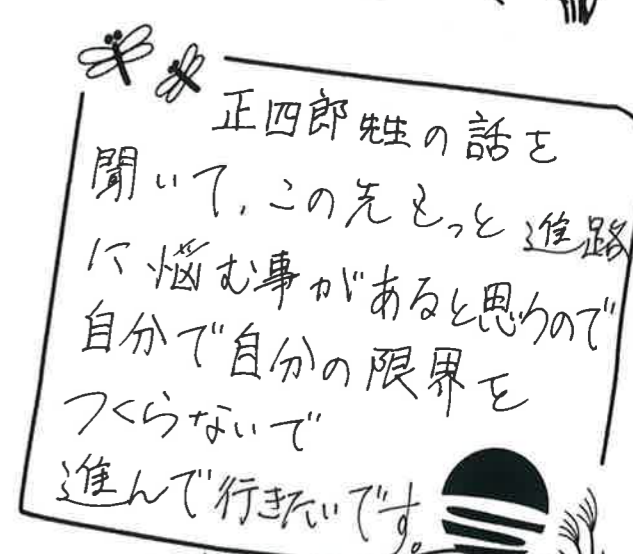 正四郎先生の話を
聞いて、この先もっと進路
に悩む事があると思うので
自分で自分の限界を
つくらないで
進んで行きたいです。